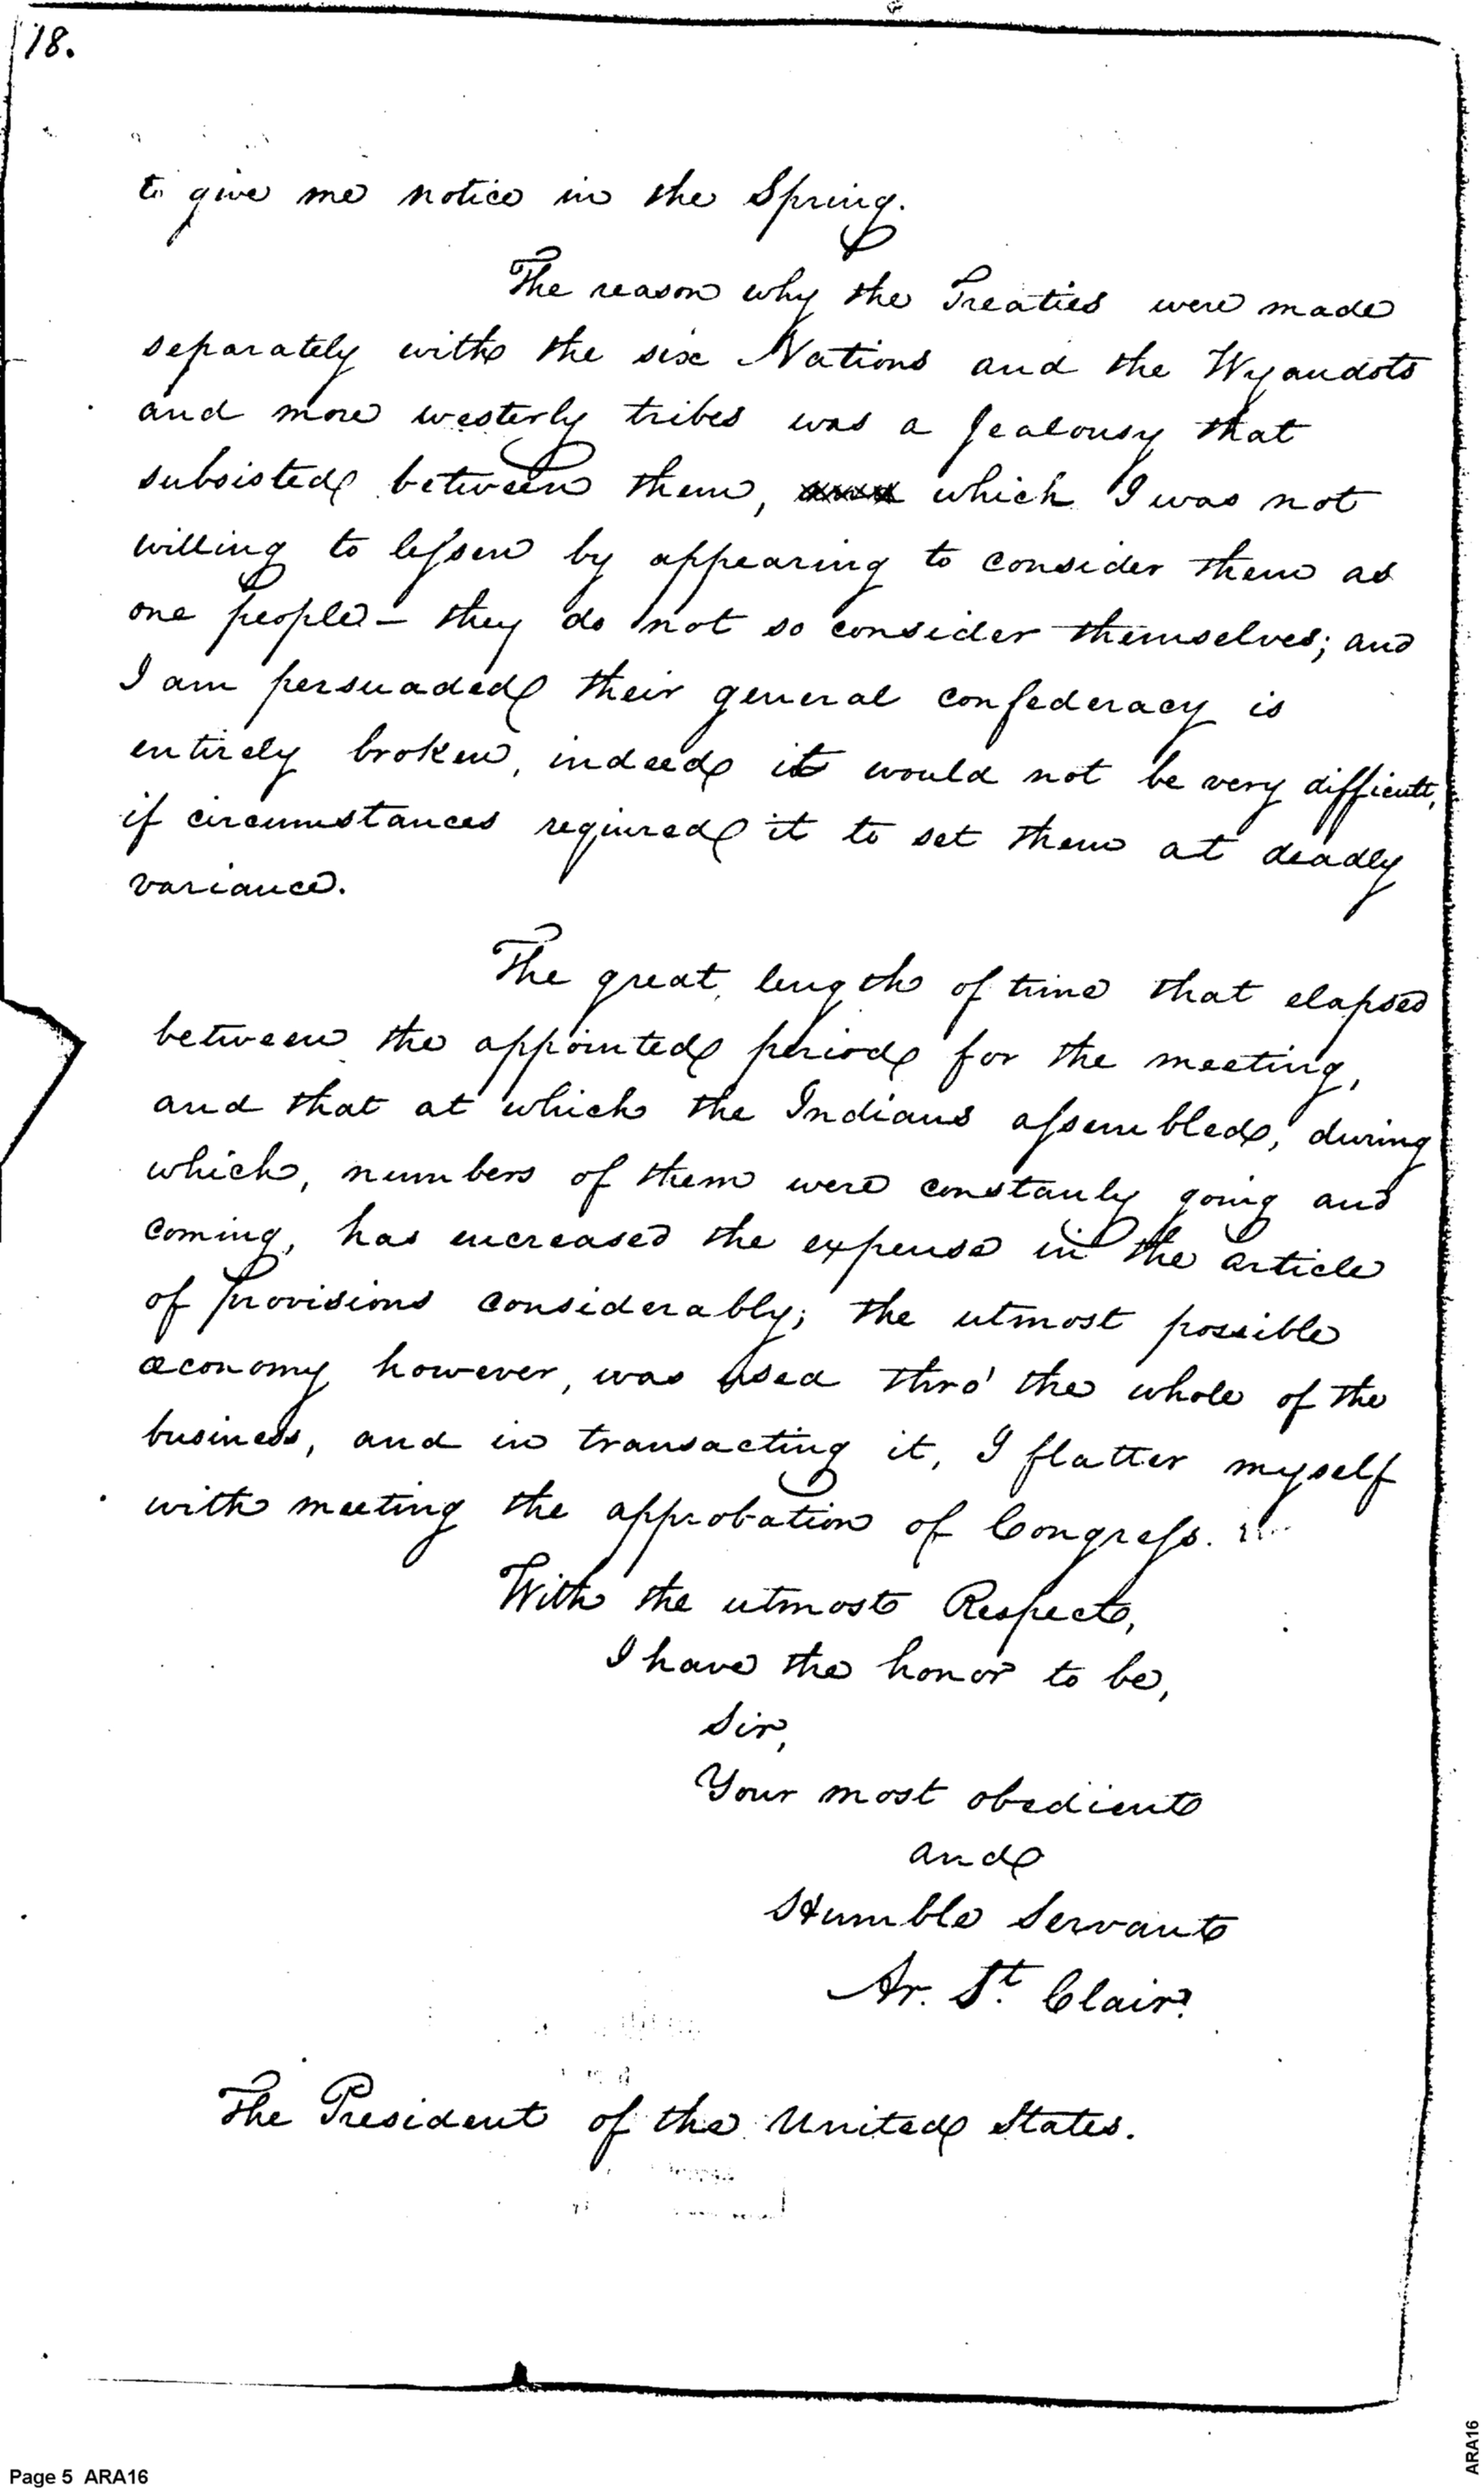 18.
to give me notice in the Spring.
The reason why the Treaties were made
separately with the six Nations and the Wyandots
and more westerly tribes was a Jealousy that
subsisted between them, which I was not
willing to lessen by appearing to consider them as
one people – they do not so consider themselves; and
I am persuaded their general confederacy is
entirely broken, indeed it would not be very difficult,
if circumstances required it to set them at deadly
variance.
The great length of time that elapsed
between the appointed period for the meeting,
and that at which the Indians assembled, during
which, numbers of them were constanly going and
coming, has encreased the expense in the article
of provisions considerably; the utmost possible
œconomy however, was used thro' the whole of the
business, and in transacting it, I flatter myself
with meeting the approbation of Congress.
With the utmost Respect,
I have the honor to be,
Sir,
Your most obedient
and
Humble Servant
Ar. St. Clair.
The President of the United States.
Page 5 ARA16
ARA16